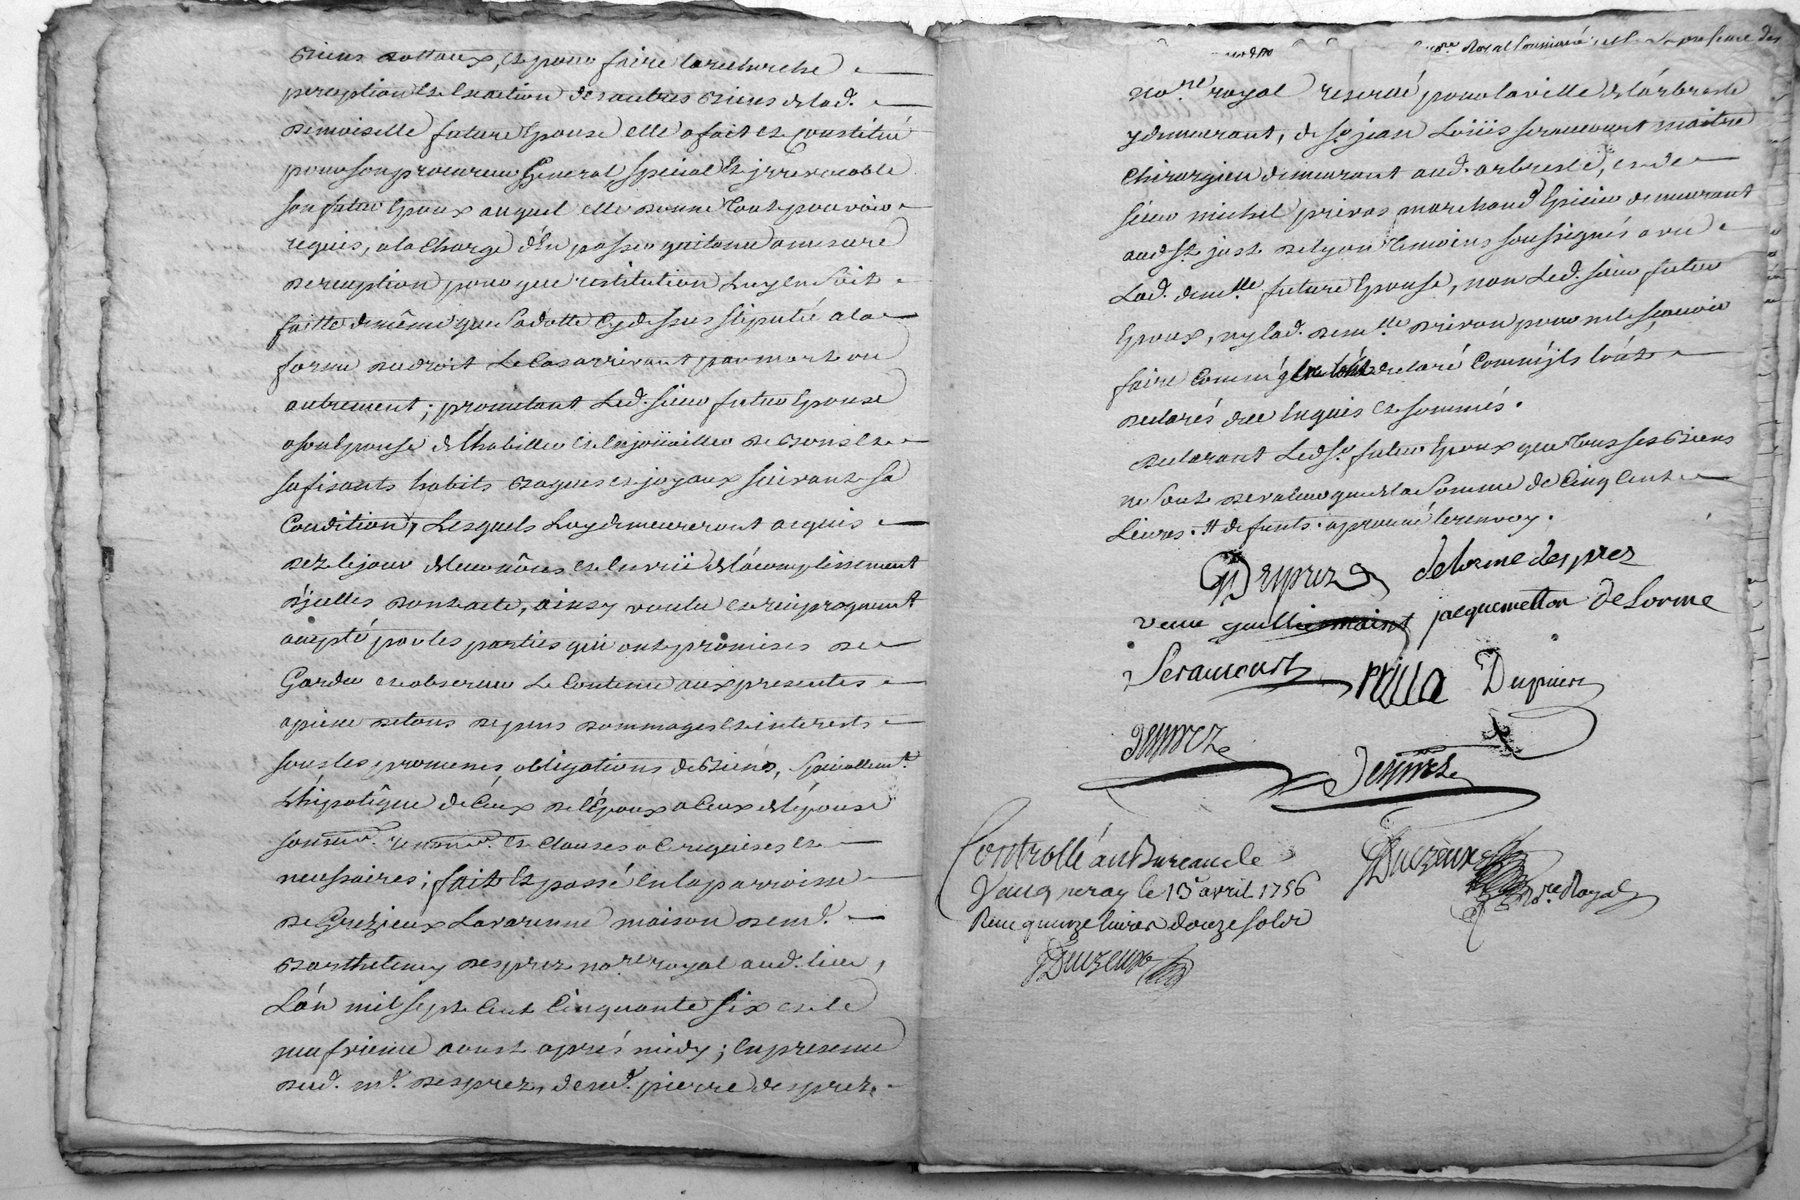 Biens dottaux, et pour faire la recherche
perception et exaction des autres Biens de lad.
Demoiselle future Epouse elle a fait et constitué
pour son procureur General special et jrrevocable
son futur Epoux auquel elle donne tout pouvoir
requis, a la charge d'En passer quitance a mesure
de reception pour que restitution luy en soit
faitte de même que sa dotte cydessus stipulée a la
forme du droit le cas arrivant par mort ou
autrement ; promettant led. sieur futur Epoux
a son Epouse de l'habiller et enjoüailler de Bons et
sufisants habits Bagues et joyaux suivant sa
Condition, Lesquels luy demeureront acquis
dez le jour de leur nôces et en vrü de l'acomplissement
d'jcelles dont acte, ainsy voulu et reciproquement
accepté par les parties qui ont promises de
Garder et observer le contenu aux presentes
a peine de tous depens dommages et interests
sous les promesses, obligations de Biens, speciallemt.
l'hipotêque de ceux de l'Epoux a ceux de l'épouse
soumon. renonon. et clauses a ce requises et
necessaires ; fait et passé en la parroisse
de Grezieux Lavarenne maison de md.
Barthelemy desprez nore. royal aud. lieu,
L'an mil sept cent cinquante six et le
neufvieme aoust après midy ; en presence
dud. md. desprez, de md. pierre desprez
nore. royal reservé pour la ville de l'arbresle
y demeurant, de sr. jean Loüis seraucourt maitre
chirurgien demeurant aud. arbresle, et de
sieur michel privas marchand Epicier demeurant
aud. st. just de lyon temoins soussignés avec
lad. demlle. future Epouse, non led. sieur futur
Epoux, ny lad. demlle. privon pour ne le sçavoir
faire comm' declaré comm'jls l'ont
declarés de ce enquis et sommés.
declarant led. sr. futur Epoux que tous ses Biens
ne sont de valeur que de la somme de cinq cent
Livres. defunts. aprouvé le renvoy.
Desprez delorme desprez
veuve jacquemetton DeLorme
Seraucourt Dupuier
desprez
desprez
Controllé au Bureau de
Vaugneray le 13 avril 1756
Reçu quinze livres douze sols
Deuzeux
Deuzeux
nore. Royal